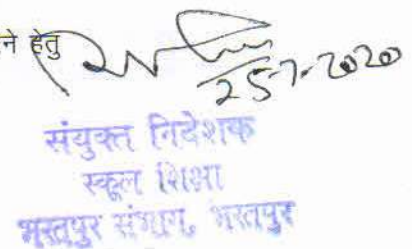 ने हेतु
25-7-2020
संयुक्त निदेशक
स्कूल शिक्षा
भरतपुर संभाग, भरतपुर